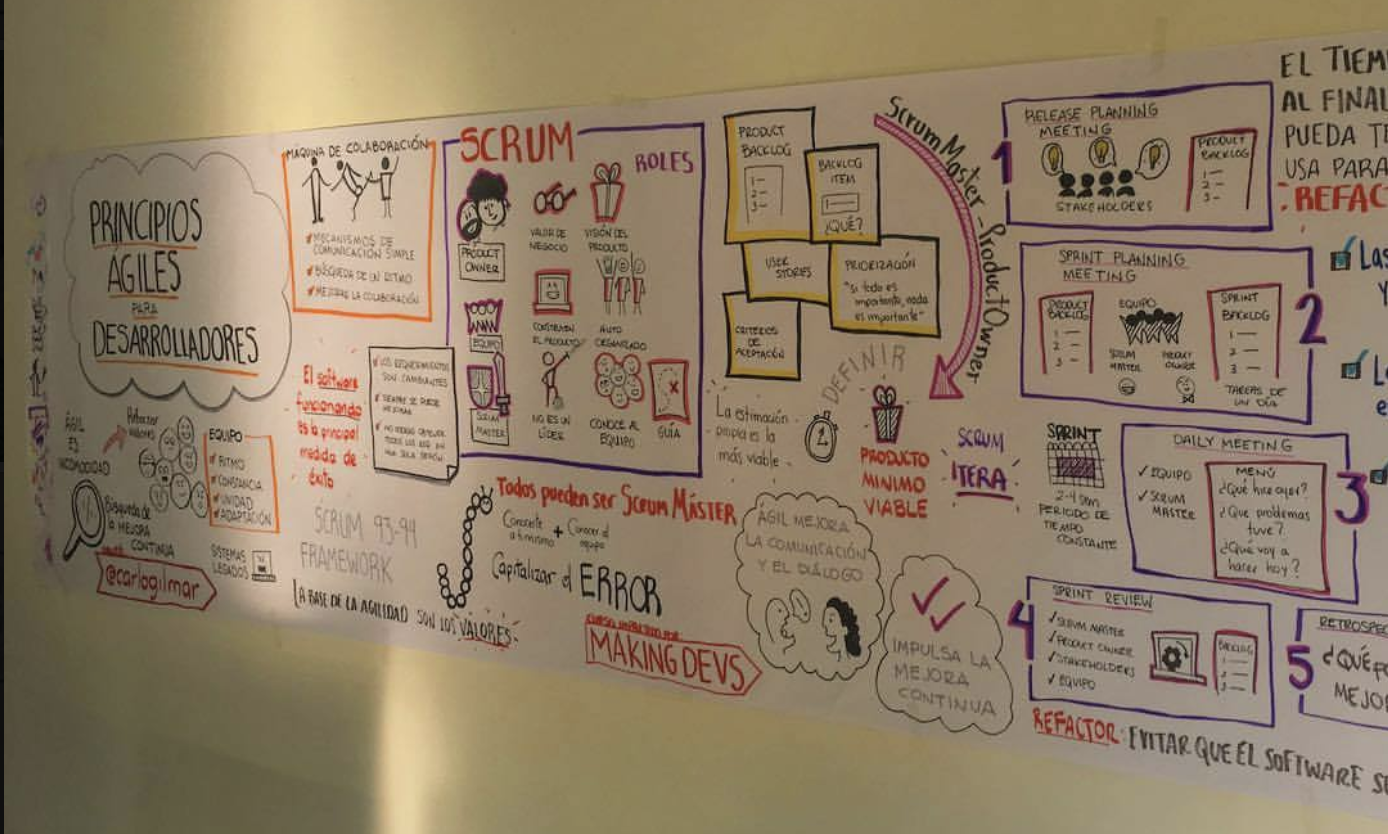 PRINCIPIOS
ÁGILES
PARA
DESARROLLADORES
ÁGIL
ES
INCOMODIDAD
Refactor
valores
Búsqueda de
la MEJORA
CONTINUA
@carlogilmar
EQUIPO
RITMO
CONSTANCIA
UNIDAD
ADAPTACIÓN
SISTEMAS
LEGADOS
MAQUINA DE COLABORACIÓN
MECANISMOS DE
COMUNICACIÓN SIMPLE
BÚSQUEDA DE UN RITMO
MEJORAR LA COLABORACIÓN
El software
funcionando
es la principal
medida de
éxito
LOS REQUERIMIENTOS
SON CAMBIANTES
SIEMPRE SE PUEDE
MEJORAR
SCRUM 93-94
FRAMEWORK
LA BASE DE LA AGILIDAD SON LOS VALORES
SCRUM
ROLES
PRODUCT
OWNER
VALOR DE
NEGOCIO
VISIÓN DEL
PRODUCTO
EQUIPO
CONSTRUYEN
EL PRODUCTO
AUTO
ORGANIZADO
SCRUM
MASTER
NO ES UN
LÍDER
CONOCE AL
EQUIPO
GUÍA
Todos pueden ser Scrum Máster
Conocerte
a ti mismo
+
Conocer al
equipo
Capitalizar el ERROR
CURSO IMPARTIDO POR
MAKING DEVS
PRODUCT
BACKLOG
1-
2-
3-
BACKLOG
ITEM
¿QUÉ?
USER
STORIES
PRIORIZACIÓN
"si todo es
importante, nada
es importante"
CRITERIOS
DE
ACEPTACIÓN
Scrum Master - Product Owner
DEFINIR
La estimación
propia es la
más viable
PRODUCTO
MINIMO
VIABLE
SCRUM
ITERA
ÁGIL MEJORA
LA COMUNICACIÓN
Y EL DIÁLOGO
IMPULSA LA
MEJORA
CONTINUA
1
RELEASE PLANNING
MEETING
STAKEHOLDERS
PRODUCT
BACKLOG
1-
2-
3-
2
SPRINT PLANNING
MEETING
PRODUCT
BACKLOG
1 —
2 —
3 —
EQUIPO
SCRUM
MASTER
PRODUCT
OWNER
SPRINT
BACKLOG
1 —
2 —
3 —
TAREAS DE
UN DÍA
SPRINT
2-4 sem
PERIODO DE
TIEMPO
CONSTANTE
3
DAILY MEETING
EQUIPO
SCRUM
MASTER
MENÚ
¿Qué hice ayer?
¿Que problemas
tuve?
¿Qué voy a
hacer hoy?
4
SPRINT REVIEW
SCRUM MASTER
PRODUCT OWNER
STAKEHOLDERS
EQUIPO
BACKLOG
1
2
3
5
RETROSPEC
¿QUÉ
MEJOR
REFACTOR: EVITAR QUE EL SOFTWARE SE
EL TIEM
AL FINAL
PUEDA TE
USA PARA
REFACT
Las
Y